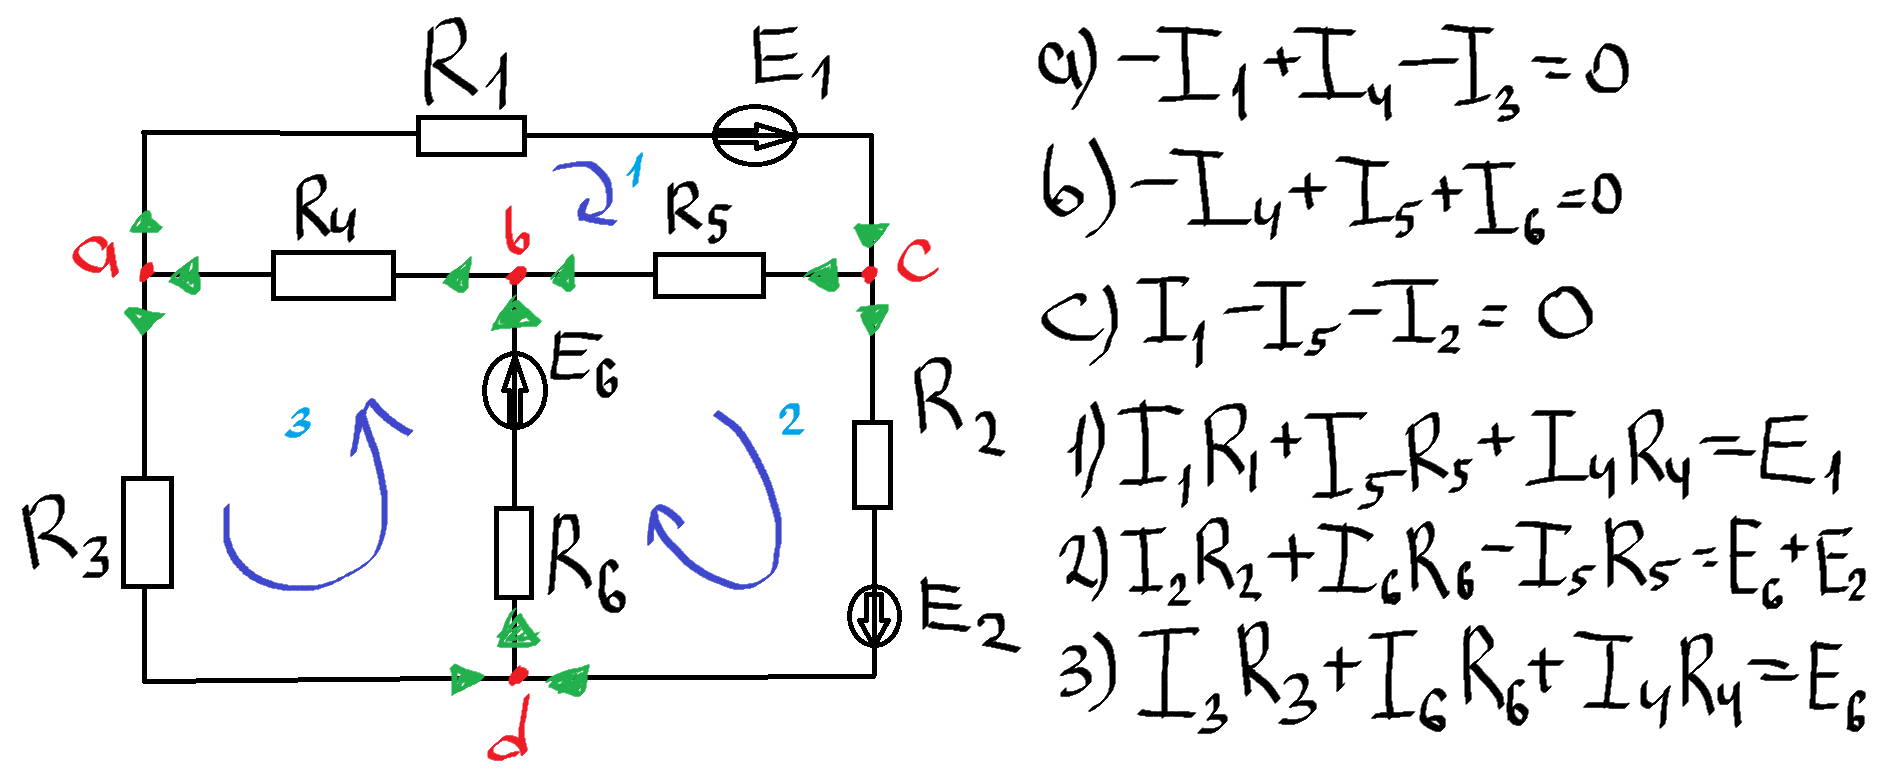 R1
E1
R4
b
R5
1
a
c
E6
R2
3
2
R3
R6
E2
d
a) -I1 + I4 - I3 = 0
b) -I4 + I5 + I6 = 0
c) I1 - I5 - I2 = 0
1) I1R1 + I5R5 + I4R4 = E1
2) I2R2 + I6R6 - I5R5 = E6 + E2
3) I3R3 + I6R6 + I4R4 = E6